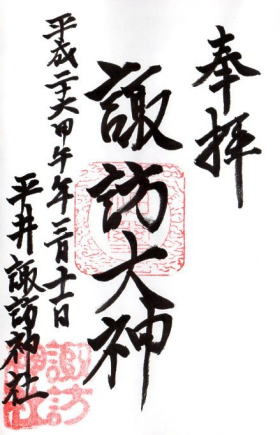 奉拝
諏訪大神
平成二十六甲午年二月十一日
平井諏訪神社
諏訪神社